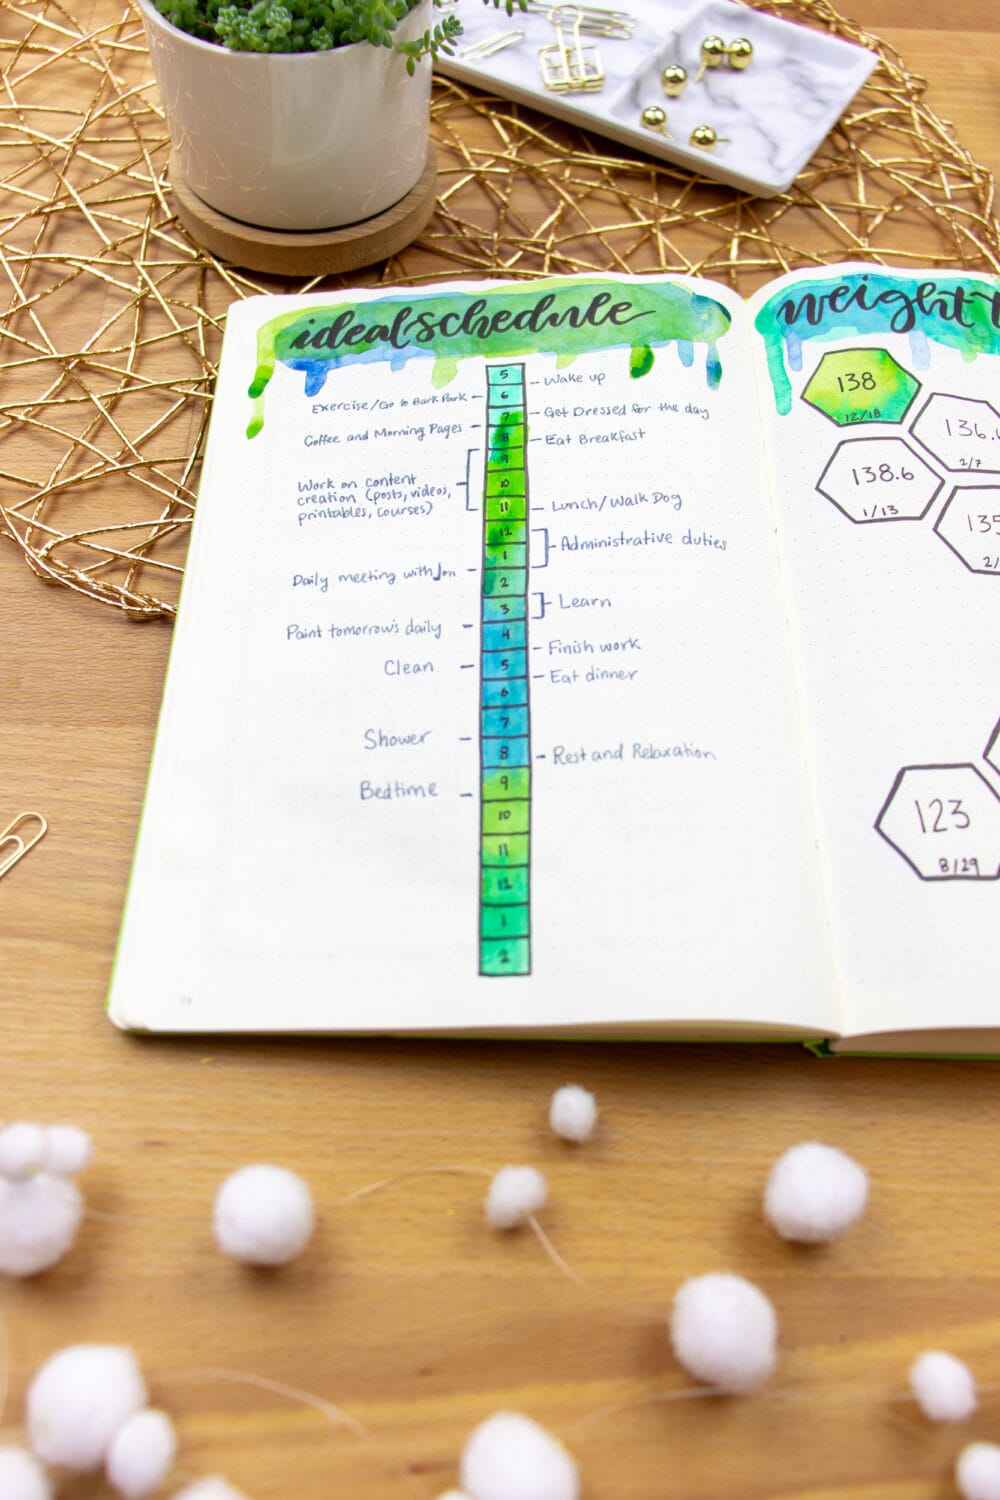 ideal schedule
5
Wake up
Exercise/Go to Bark Park
6
7
Get Dressed for the day
Coffee and Morning Pages
8
Eat Breakfast
9
Work on content
creation (posts, videos,
printables, courses)
10
11
Lunch/Walk Dog
12
Administrative duties
1
Daily meeting with Jon
2
3
Learn
Paint tomorrow's daily
4
Finish work
Clean
5
Eat dinner
6
7
Shower
8
Rest and Relaxation
9
Bedtime
10
11
12
1
2
weight
138
12/18
136.
2/7
138.6
1/13
135
2/
123
8/29